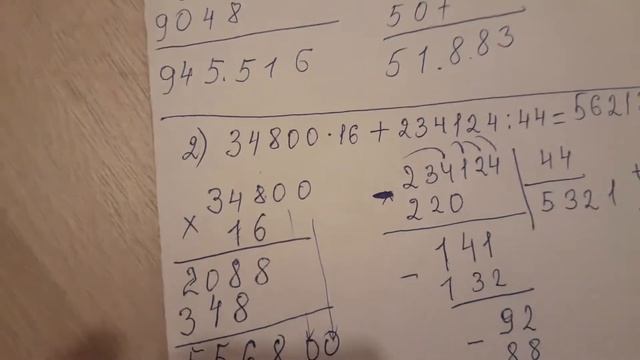 9048
507
945.516
51.8.83
2) 34800·16+234124:44=5621
34800
× 16
2088
348
556800
234124 | 44
- 220
5321 +
- 141
132
- 92
88